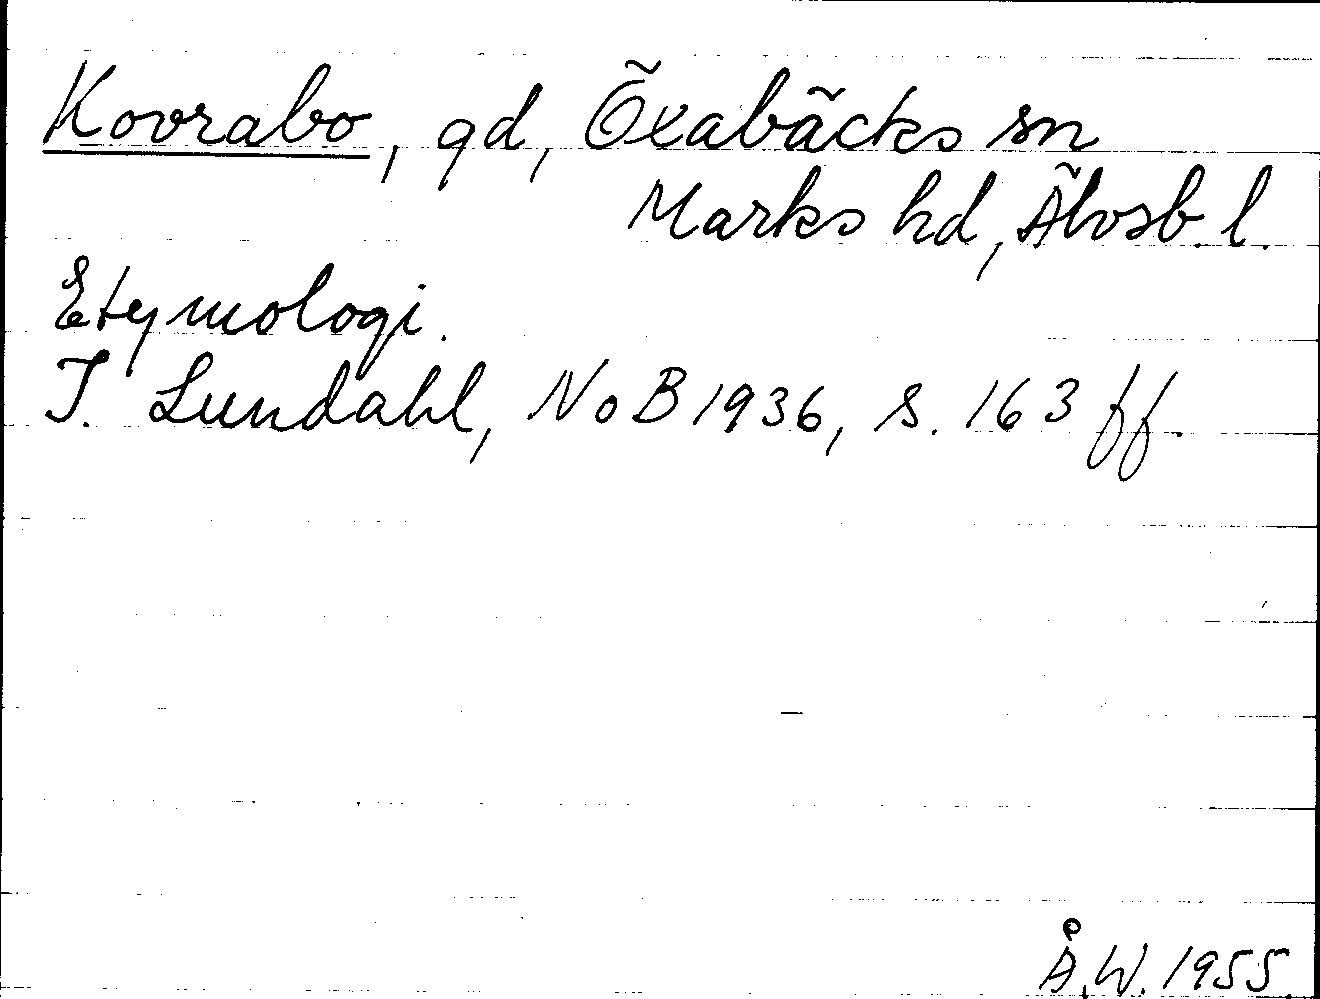 Kovrabo, gd, Öxabäcks sn
Marks hd, Älvsb. l.
Etymologi.
I. Lundahl, NoB 1936, s. 163 ff.
Å.W. 1955.